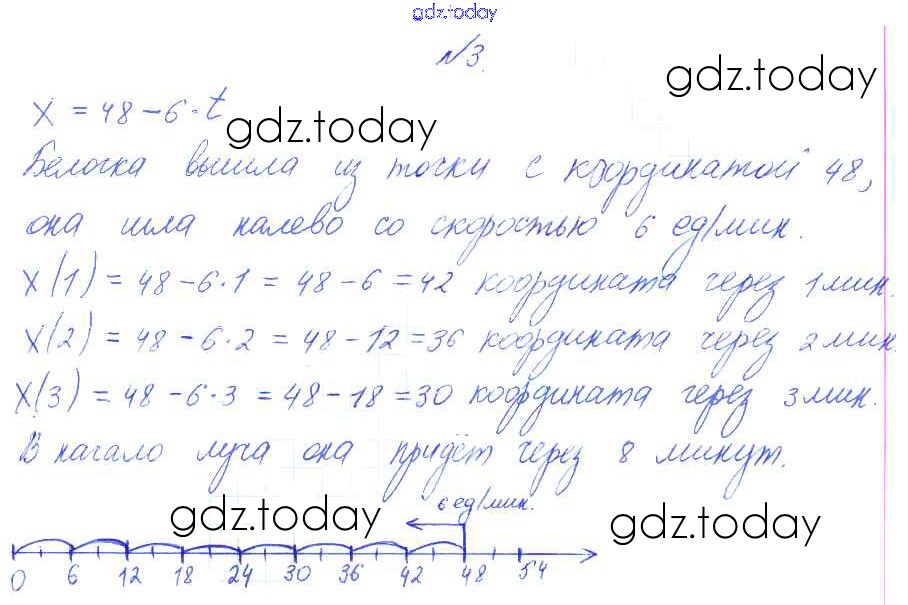 gdz.today
№3.
gdz.today
x = 48 - 6 · t
gdz.today
Белочка вышла из точки с координатой 48,
она шла налево со скоростью 6 ед/мин.
x(1) = 48 - 6·1 = 48 - 6 = 42 координата через 1 мин.
x(2) = 48 - 6·2 = 48 - 12 = 36 координата через 2 мин.
x(3) = 48 - 6·3 = 48 - 18 = 30 координата через 3 мин.
В начало луча она придёт через 8 минут.
6 ед/мин.
gdz.today
gdz.today
0 6 12 18 24 30 36 42 48 54